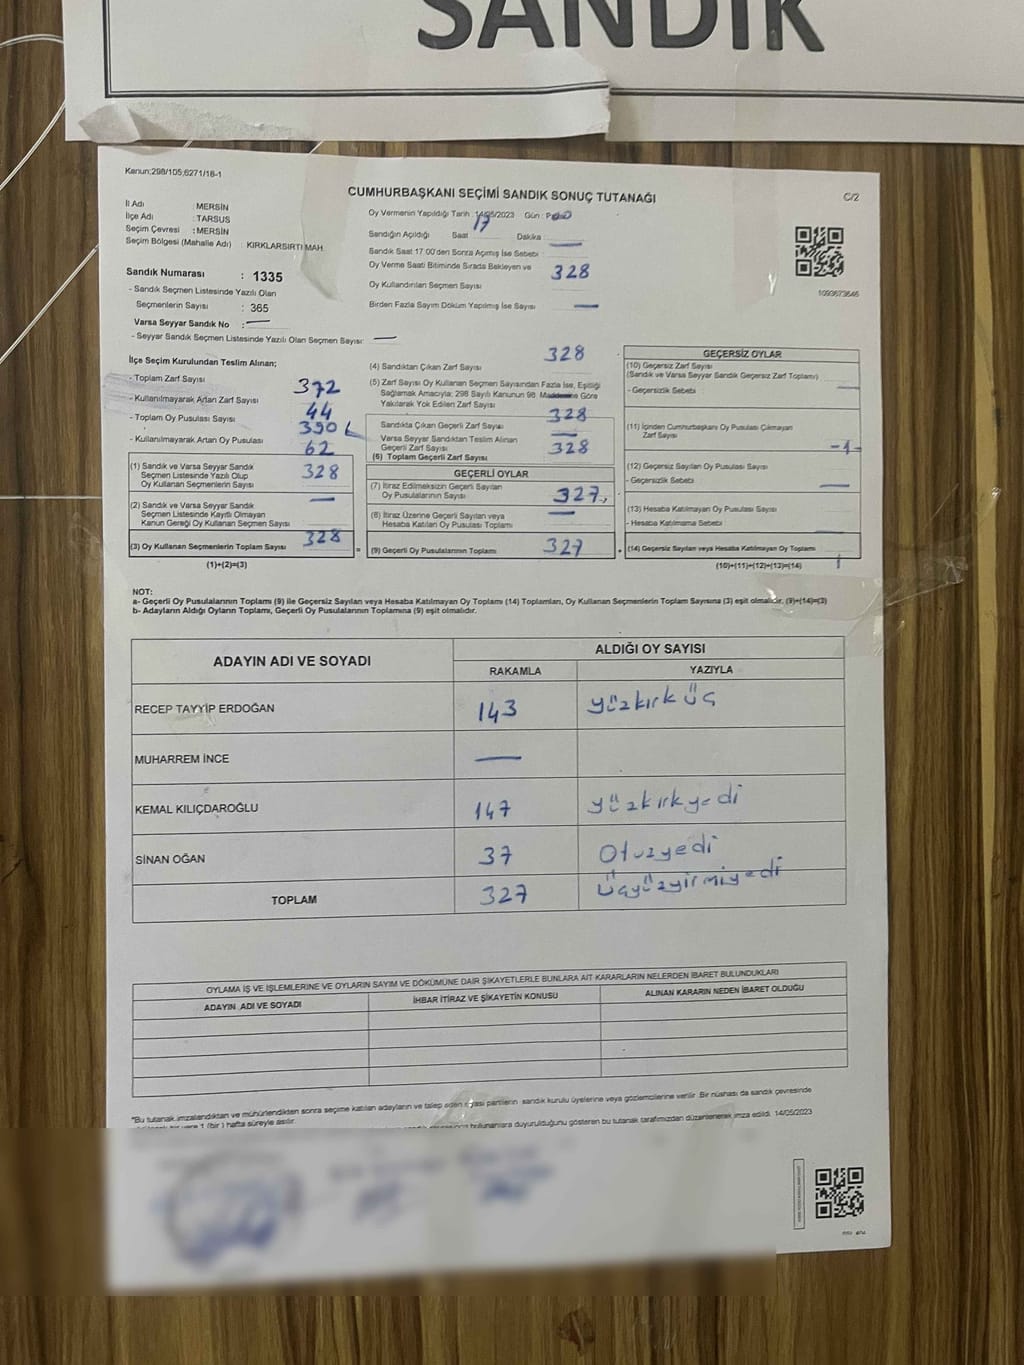 SANDIK
Kanun:298/105;6271/18-1
CUMHURBAŞKANI SEÇİMİ SANDIK SONUÇ TUTANAĞI
C/2
İl Adı : MERSİN
İlçe Adı : TARSUS
Seçim Çevresi : MERSİN
Seçim Bölgesi (Mahalle Adı) : KIRKLARSIRTI MAH.
Sandık Numarası : 1335
- Sandık Seçmen Listesinde Yazılı Olan
Seçmenlerin Sayısı : 365
Varsa Seyyar Sandık No : —
- Seyyar Sandık Seçmen Listesinde Yazılı Olan Seçmen Sayısı: —
Oy Vermenin Yapıldığı Tarih : 14/05/2023 Gün :
Sandığın Açıldığı Saat 17 Dakika —
Sandık Saat 17:00'den Sonra Açımış İse Sebebi
Oy Verme Saati Bitiminde Sırada Bekleyen ve
Oy Kullandırılan Seçmen Sayısı 328
Birden Fazla Sayım Döküm Yapılmış İse Sayısı —
1093673646
İlçe Seçim Kurulundan Teslim Alınan;
- Toplam Zarf Sayısı 372
- Kullanılmayarak Artan Zarf Sayısı 44
- Toplam Oy Pusulası Sayısı 390
- Kullanılmayarak Artan Oy Pusulası 62
(1) Sandık ve Varsa Seyyar Sandık
Seçmen Listesinde Yazılı Olup
Oy Kullanan Seçmenlerin Sayısı 328
(2) Sandık ve Varsa Seyyar Sandık
Seçmen Listesinde Kayıtlı Olmayan
Kanun Gereği Oy Kullanan Seçmen Sayısı —
(3) Oy Kullanan Seçmenlerin Toplam Sayısı 328
(1)+(2)=(3)
(4) Sandıktan Çıkan Zarf Sayısı 328
(5) Zarf Sayısı Oy Kullanan Seçmen Sayısından Fazla İse, Eşitliği
Sağlamak Amacıyla; 298 Sayılı Kanunun 98. Maddesine Göre
Yakılarak Yok Edilen Zarf Sayısı —
Sandıkta Çıkan Geçerli Zarf Sayısı 328
Varsa Seyyar Sandıktan Teslim Alınan
Geçerli Zarf Sayısı —
(6) Toplam Geçerli Zarf Sayısı 328
GEÇERLİ OYLAR
(7) İtiraz Edilmeksizin Geçerli Sayılan
Oy Pusulalarının Sayısı 327
(8) İtiraz Üzerine Geçerli Sayılan veya
Hesaba Katılan Oy Pusulası Toplamı —
= (9) Geçerli Oy Pusulalarının Toplamı 327 +
GEÇERSİZ OYLAR
(10) Geçersiz Zarf Sayısı
(Sandık ve Varsa Seyyar Sandık Geçersiz Zarf Toplamı)
- Geçersizlik Sebebi —
(11) İçinden Cumhurbaşkanı Oy Pusulası Çıkmayan
Zarf Sayısı -1-
(12) Geçersiz Sayılan Oy Pusulası Sayısı
- Geçersizlik Sebebi —
(13) Hesaba Katılmayan Oy Pusulası Sayısı
- Hesaba Katılmama Sebebi —
(14) Geçersiz Sayılan veya Hesaba Katılmayan Oy Toplamı 1
(10)+(11)+(12)+(13)=(14)
NOT:
a- Geçerli Oy Pusulalarının Toplamı (9) ile Geçersiz Sayılan veya Hesaba Katılmayan Oy Toplamı (14) Toplamları, Oy Kullanan Seçmenlerin Toplam Sayısına (3) eşit olmalıdır. (9)+(14)=(3)
b- Adayların Aldığı Oyların Toplamı, Geçerli Oy Pusulalarının Toplamına (9) eşit olmalıdır.
ADAYIN ADI VE SOYADI
ALDIĞI OY SAYISI
RAKAMLA YAZIYLA
RECEP TAYYİP ERDOĞAN 143 yüzkırküç
MUHARREM İNCE —
KEMAL KILIÇDAROĞLU 147 yüzkırkyedi
SİNAN OĞAN 37 Otuzyedi
TOPLAM 327 üçyüzyirmiyedi
OYLAMA İŞ VE İŞLEMLERİNE VE OYLARIN SAYIM VE DÖKÜMÜNE DAİR ŞİKAYETLERLE BUNLARA AİT KARARLARIN NELERDEN İBARET BULUNDUKLARI
ADAYIN ADI VE SOYADI İHBAR İTİRAZ VE ŞİKAYETİN KONUSU ALINAN KARARIN NEDEN İBARET OLDUĞU
*Bu tutanak imzalandıktan ve mühürlendikten sonra seçime katılan adayların ve talep eden siyasi partilerin sandık kurulu üyelerine veya gözlemcilerine verilir. Bir nüshası da sandık çevresinde
1 (bir) hafta süreyle asılır. bulunanlara duyurulduğunu gösteren bu tutanak tarafımızdan düzenlenerek imza edildi. 14/05/2023